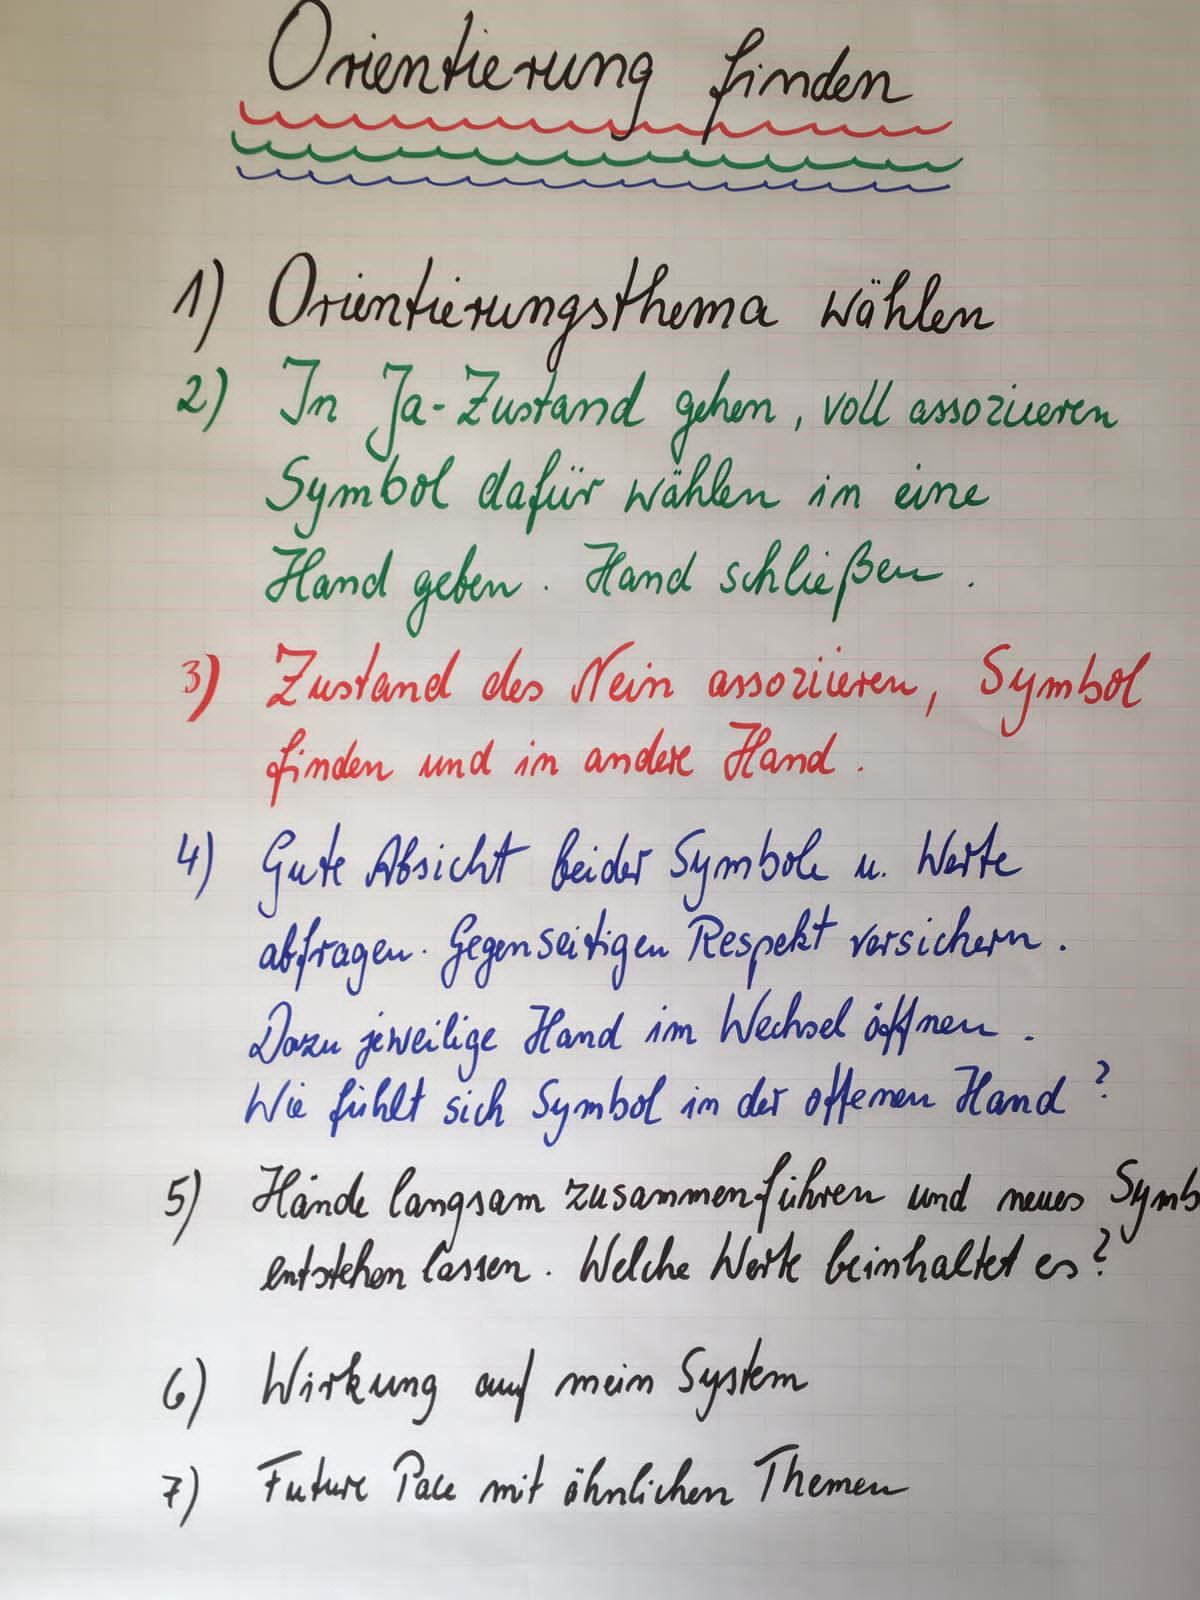 Orientierung finden
1) Orientierungsthema wählen
2) In Ja-Zustand gehen, voll assoziieren
Symbol dafür wählen in eine
Hand geben. Hand schließen.
3) Zustand des Nein assoziieren, Symbol
finden und in andere Hand.
4) Gute Absicht beider Symbole u. Werte
abfragen. Gegenseitigen Respekt versichern.
Dazu jeweilige Hand im Wechsel öffnen.
Wie fühlt sich Symbol in der offenen Hand?
5) Hände langsam zusammenführen und neues Symb
entstehen lassen. Welche Werte beinhaltet es?
6) Wirkung auf mein System
7) Future Pace mit ähnlichen Themen